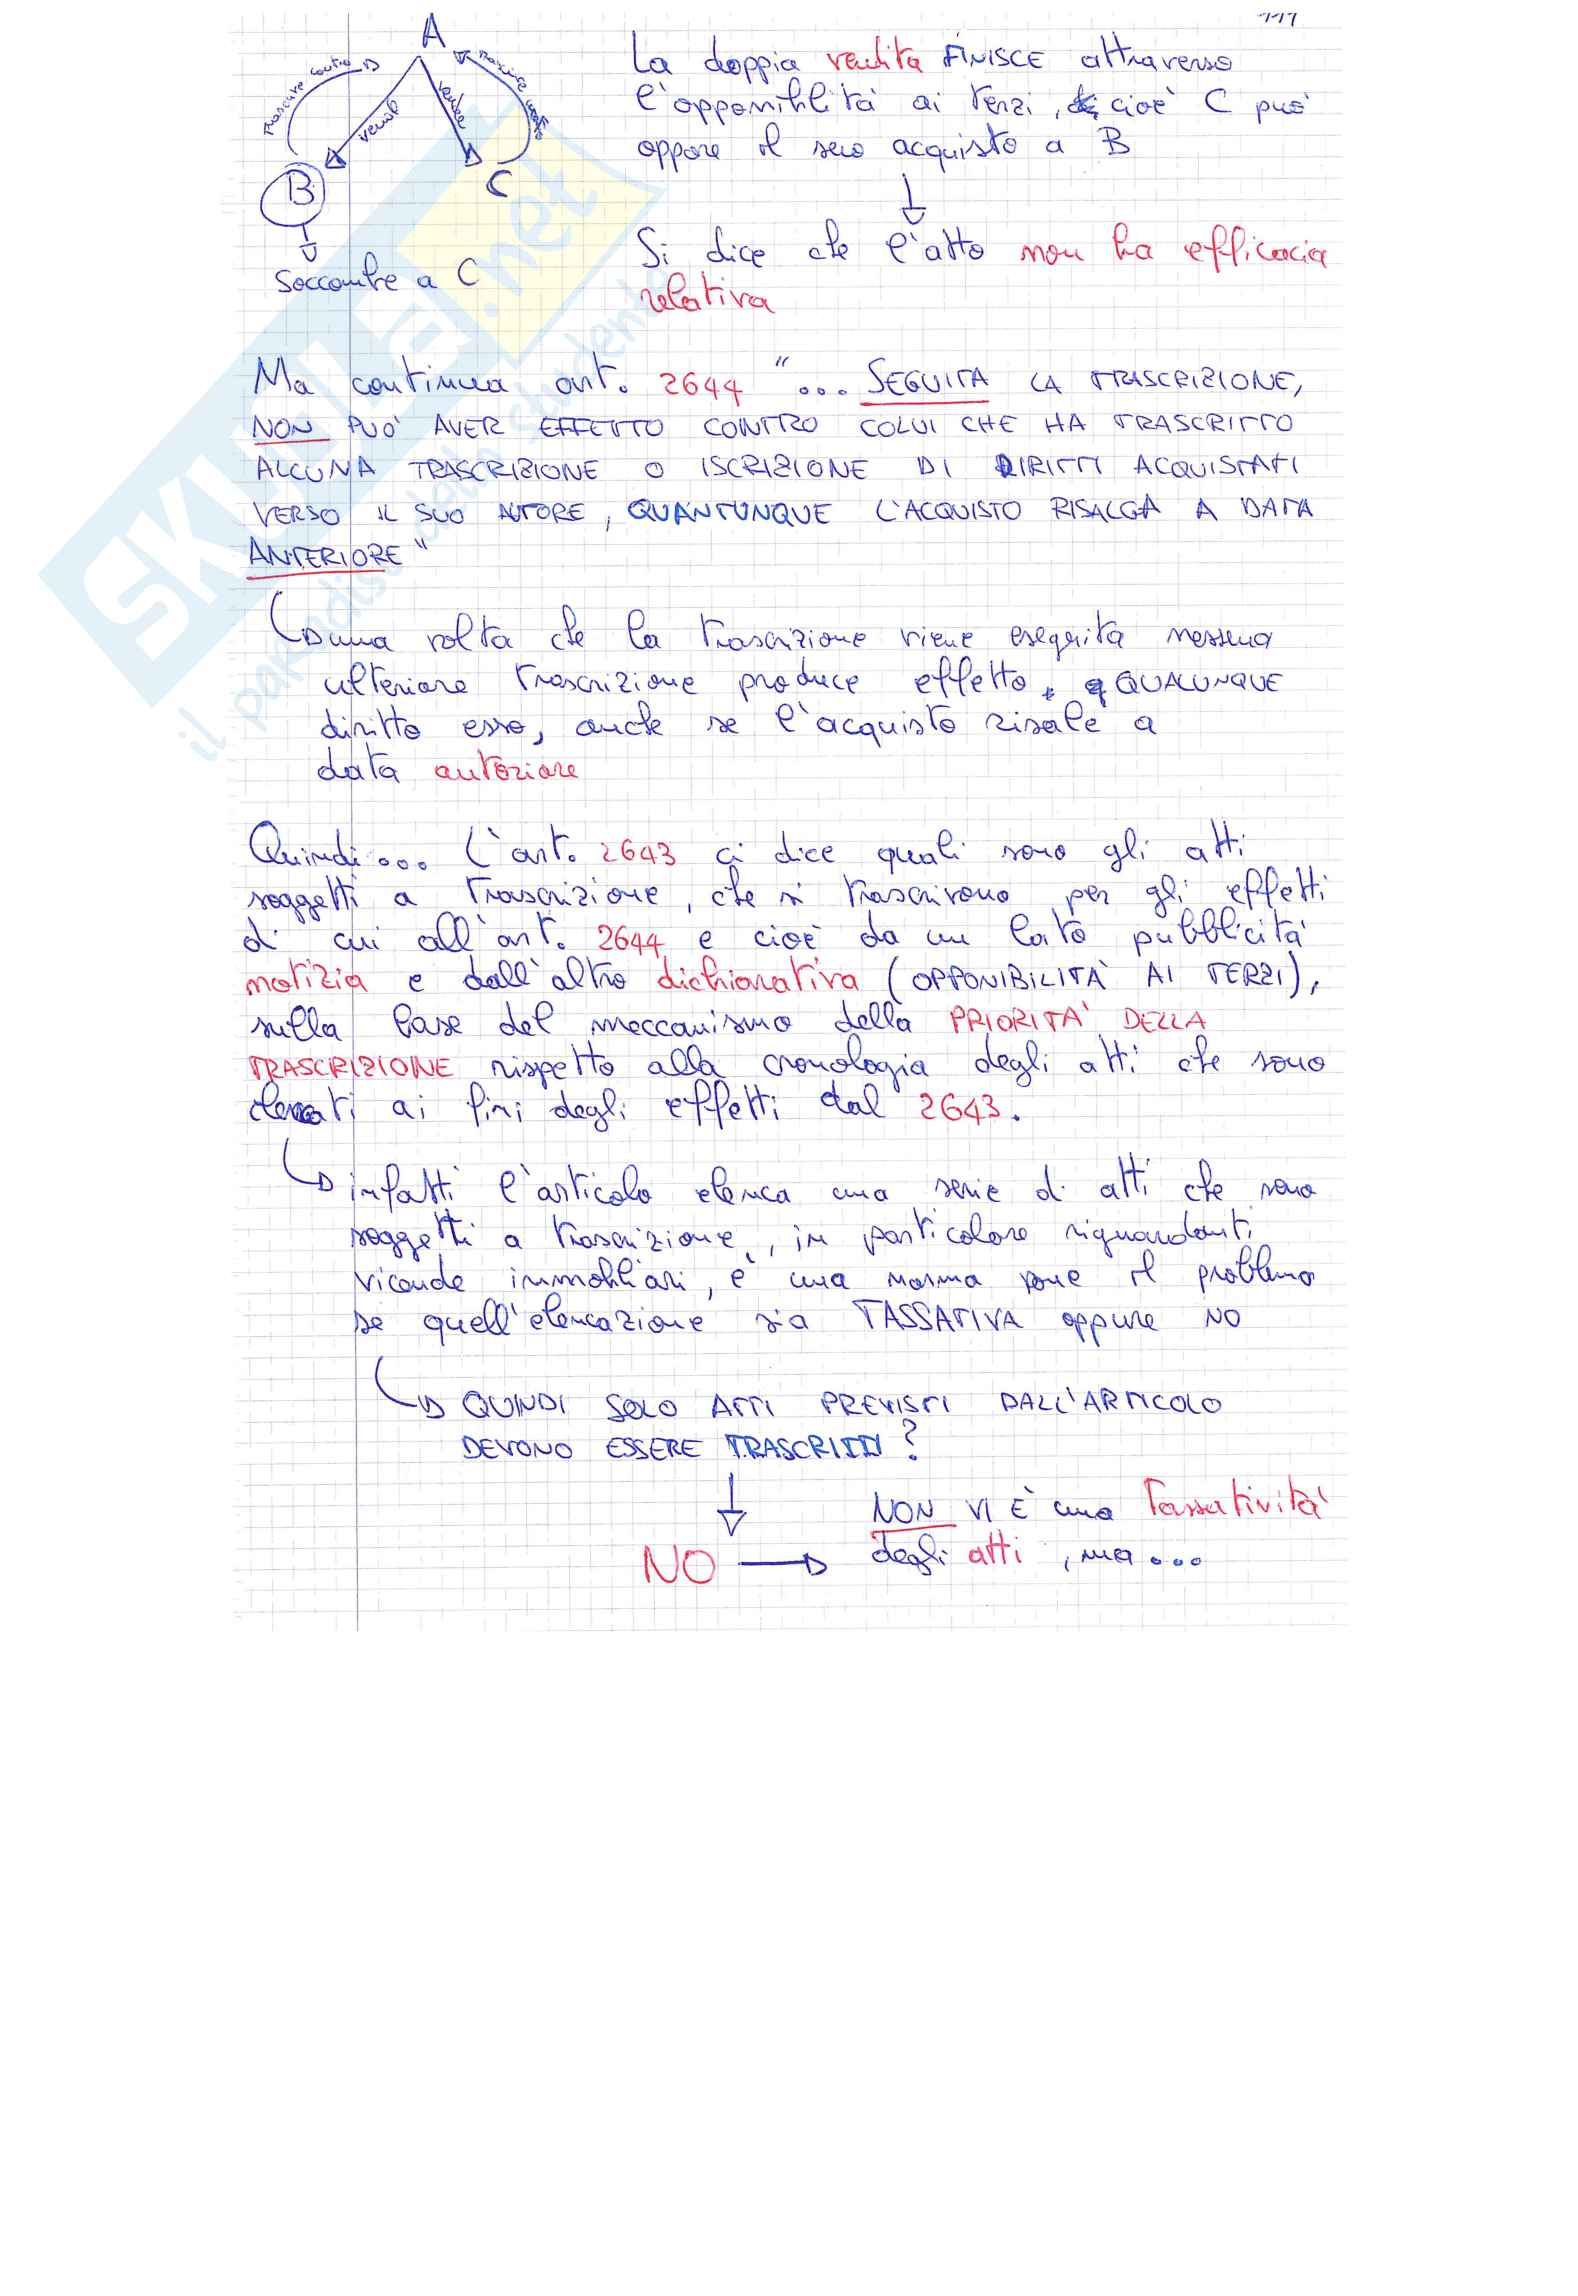 A
Trascrive contro
vende
vende
trascrive contro
B
C
Soccombe a C
La doppia vendita FINISCE attraverso
l'opponibilità ai terzi, cioè C può
opporre il suo acquisto a B
Si dice che l'atto non ha efficacia
relativa
Ma continua art. 2644 "... SEGUITA LA TRASCRIZIONE,
NON PUÒ AVER EFFETTO CONTRO COLUI CHE HA TRASCRITTO
ALCUNA TRASCRIZIONE O ISCRIZIONE DI DIRITTI ACQUISTATI
VERSO IL SUO AUTORE, QUANTUNQUE L'ACQUISTO RISALGA A DATA
ANTERIORE"
una volta che la trascrizione viene eseguita nessuna
ulteriore trascrizione produce effetto, QUALUNQUE
diritto esso, anche se l'acquisto risale a
data anteriore
Quindi... L'art. 2643 ci dice quali sono gli atti
soggetti a trascrizione, che si trascrivono per gli effetti
di cui all'art. 2644 e cioè da un lato pubblicità
notizia e dall'altro dichiarativa (OPPONIBILITÀ AI TERZI),
sulla base del meccanismo della PRIORITÀ DELLA
TRASCRIZIONE rispetto alla cronologia degli atti che sono
elencati ai fini degli effetti dal 2643.
infatti l'articolo elenca una serie di atti che sono
soggetti a trascrizione, in particolare riguardanti
vicende immobiliari, è una norma pone il problema
se quell'elencazione sia TASSATIVA oppure NO
QUINDI SOLO ATTI PREVISTI DALL'ARTICOLO
DEVONO ESSERE TRASCRITTI?
NO
NON VI È una Tassatività
degli atti, ma...
SKUOLA.net
il paradiso dello studente